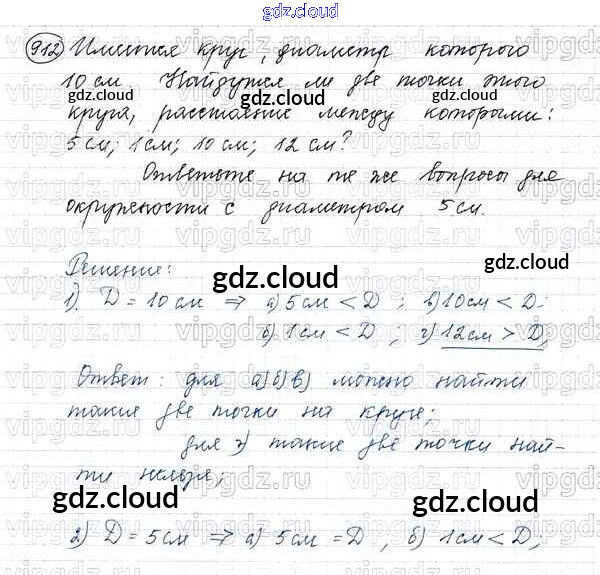 gdz.cloud
912 Имеется круг, диаметр которого
10 см. Найдутся ли две точки этого
gdz.cloud gdz.cloud
круга, расстояние между которыми:
5 см; 1 см; 10 см; 12 см?
gdz.cloud gdz.cloud
Ответьте на те же вопросы для
окружности с диаметром 5 см.
Решение:
gdz.cloud gdz.cloud
1). D = 10 см ⇒ а) 5 см < D ; в) 10 см < D.
б) 1 см < D ; г) 12 см > D;
Ответ: для а) б) в) можно найти
gdz.cloud gdz.cloud
такие две точки на круге;
для г) такие две точки най-
ти нельзя;
gdz.cloud gdz.cloud
2) D = 5 см ⇒ а) 5 см = D ; б) 1 см < D;